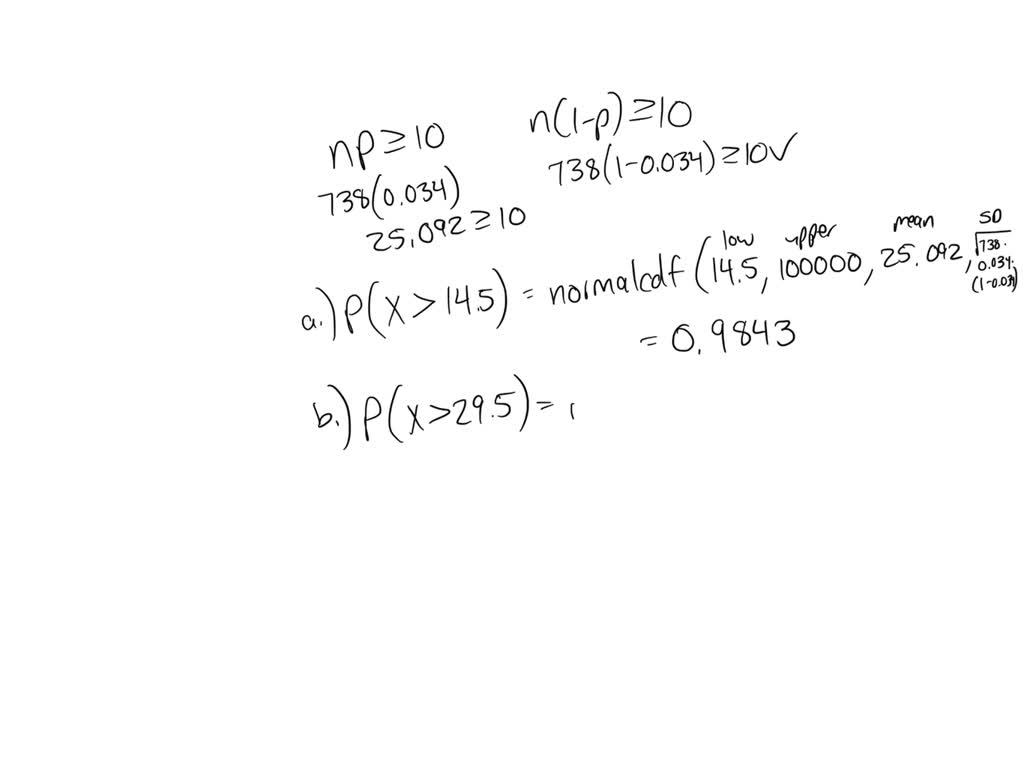 np ≥ 10
n(1-p) ≥ 10
738(0.034)
738(1-0.034) ≥ 10 ✓
25.092 ≥ 10
low upper mean SD
a.) P(X > 14.5) = normalcdf (14.5, 100000, 25.092, √738· 0.034· (1-0.034)
= 0.9843
b.) P(X > 29.5) =